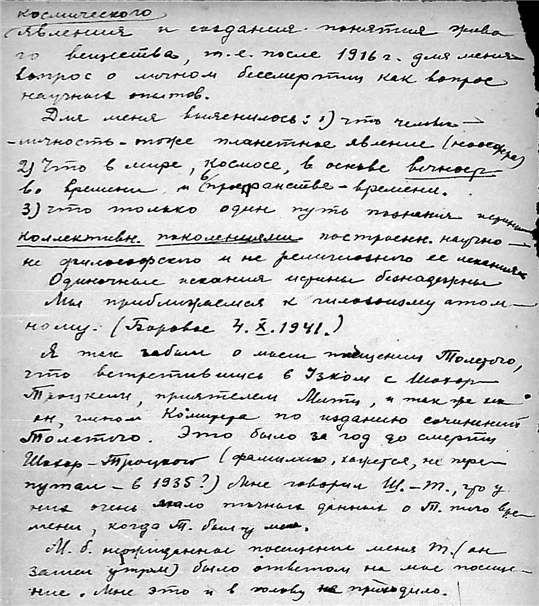 космического
явления и создания понятия живо
го вещества, т.е. после 1916 г. для меня
вопрос о личном бессмертии как вопрос
научных опытов.
Для меня выяснилось: 1) что челов.—
-личность - тоже планетное явление (ноосфера)
2) Что в мире, Космосе, в основе вечность
во времени и в пространстве-времени.
3) что только один путь познания истины
коллективн. поколениями построен. научно—
не философского и не религиозного ее искания
Одиночные искания истины безнадежны
Мы приближаемся к атом—
ному. (Боровое 4.X.1941.)
Я так забыл о моем посещении Толстого,
что встретившись в Узком с Шохор-
Троцким, приятелем Мити, и так же как
он, членом Комитета по изданию сочинений
Толстого. Это было за год до смерти
Шохор-Троцкого (фамилию, кажется, не пере-
путал - в 1935?) Мне говорил Ш.-Т., что у
них очень мало точных данных о Т. того вре-
мени, когда Т. был у меня.
М.б. неожиданное посещение меня Т. (он
зашел утром) было ответом на мое посеще-
ние. Мне это и в голову не приходило.